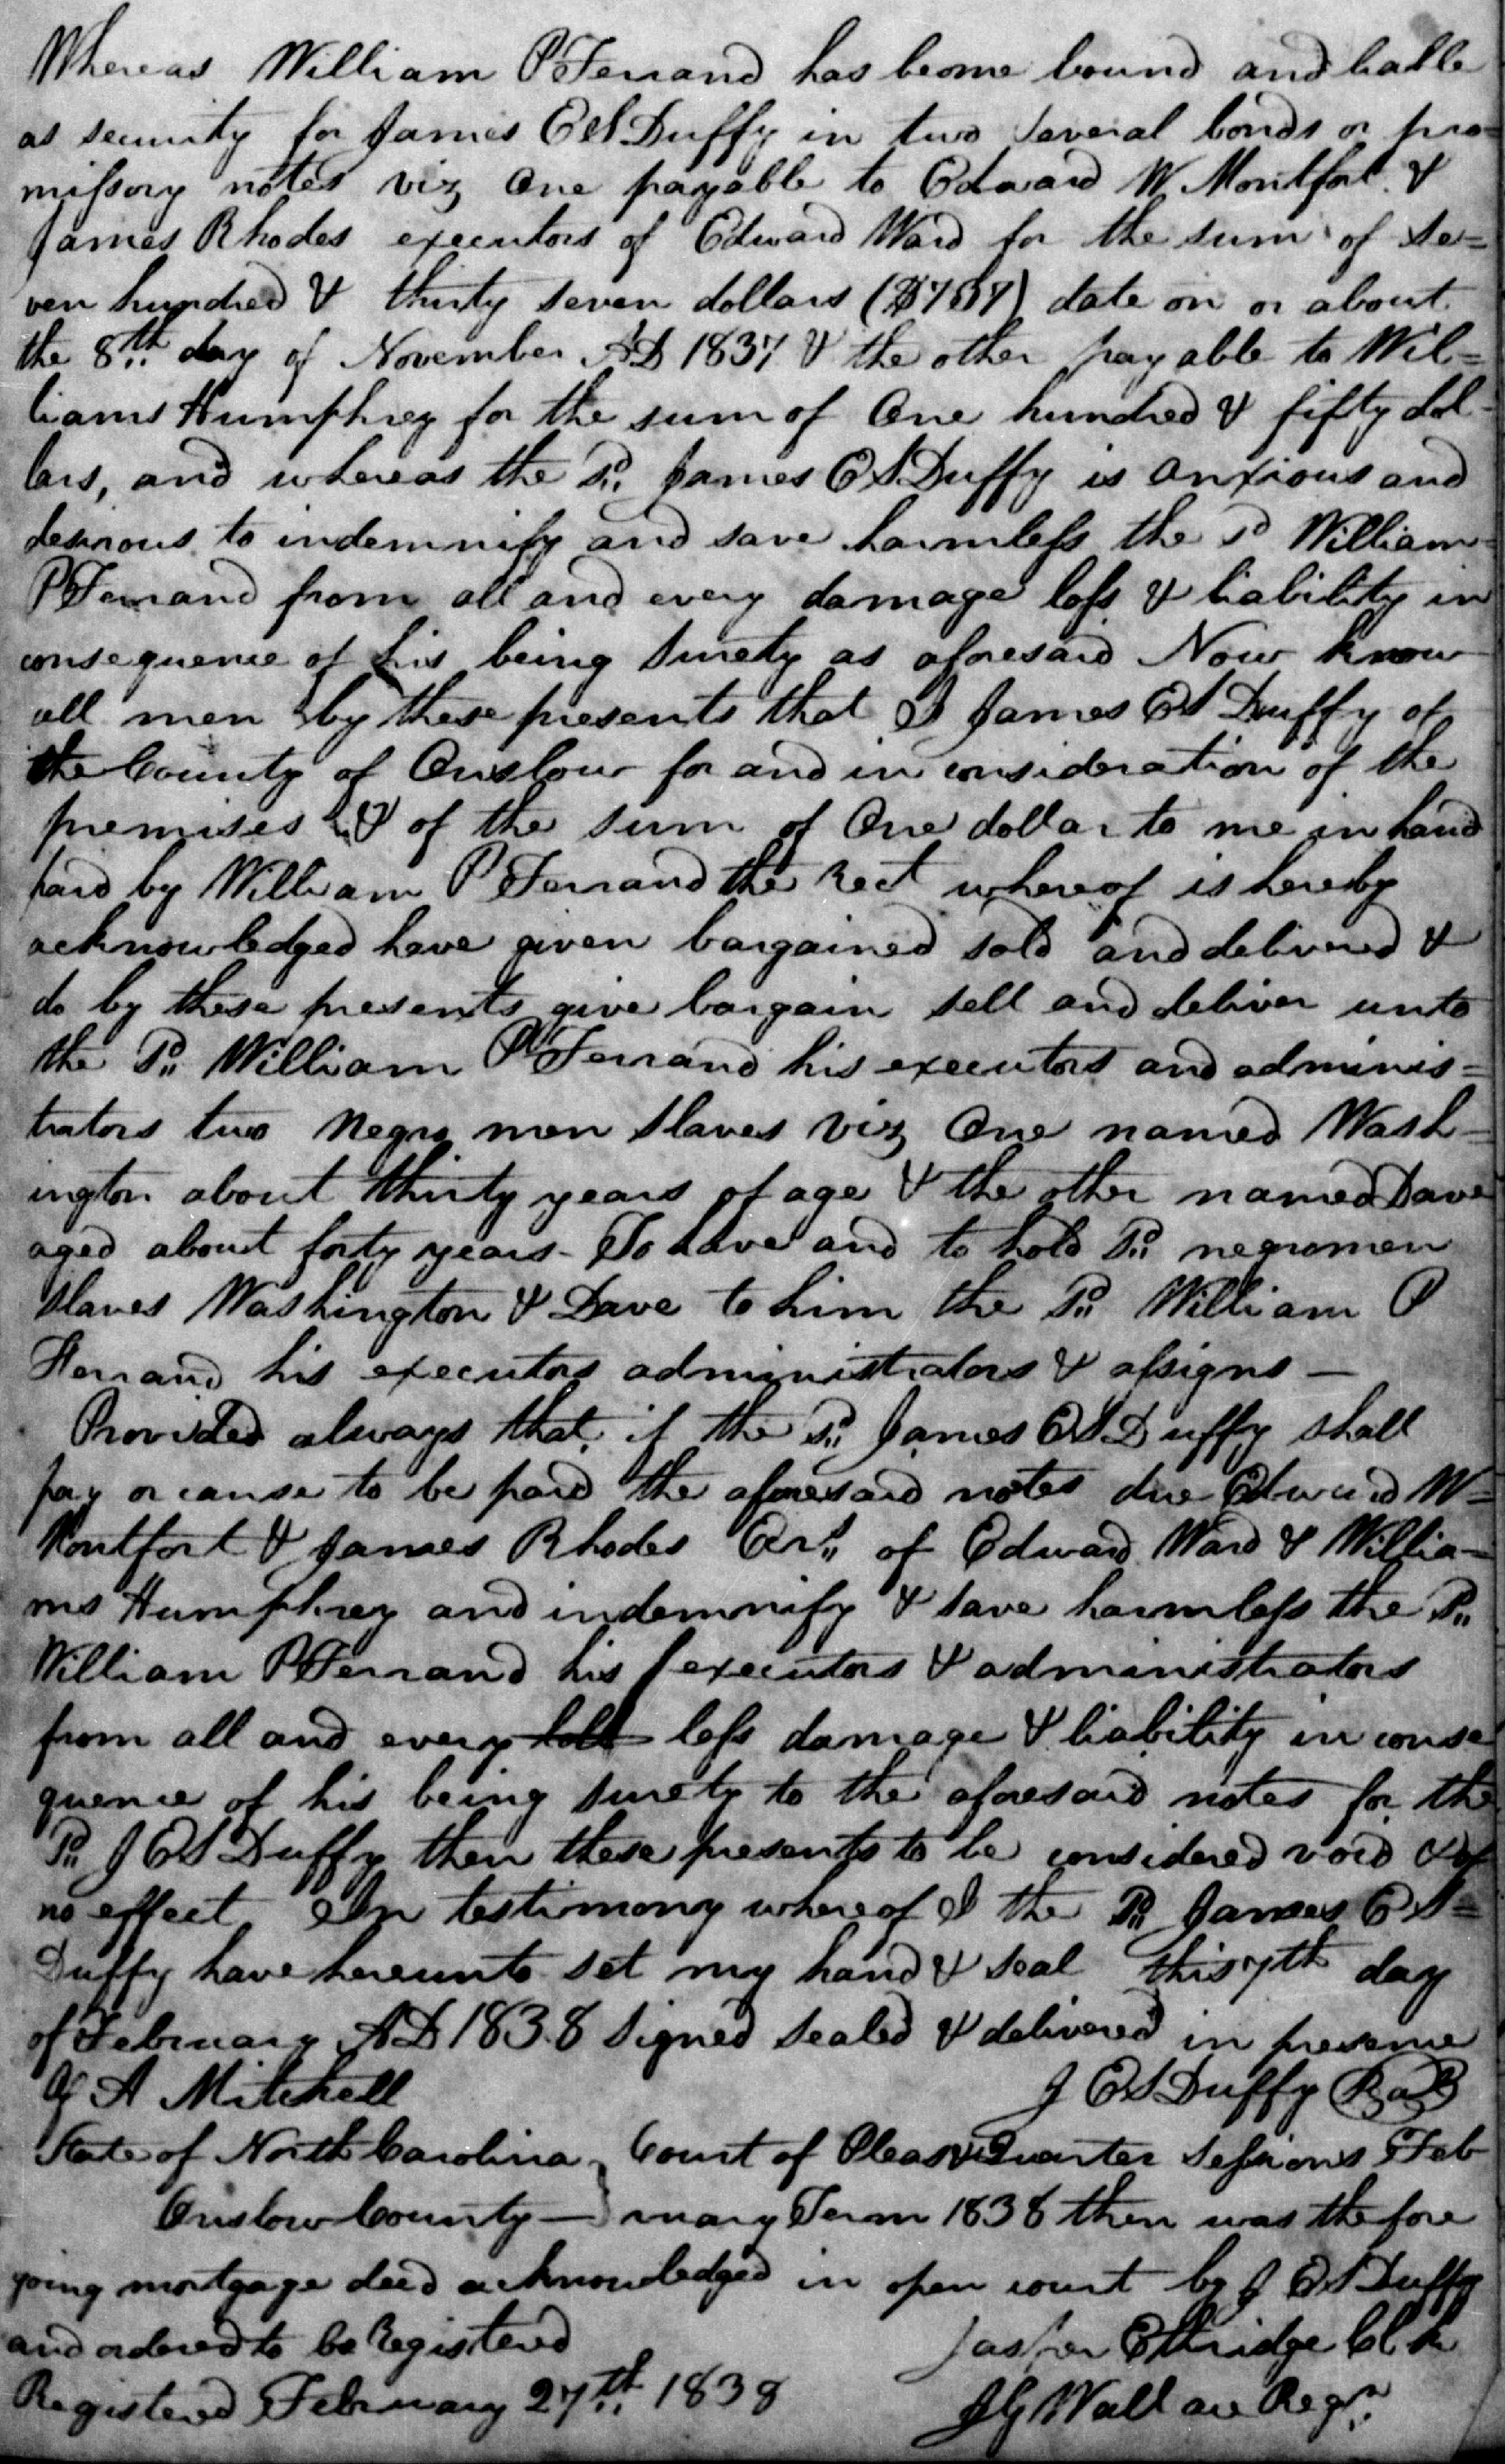 Whereas William P Ferrand has become bound and liable
as security for James E S Duffy in two several bonds or pro-
missory notes viz One payable to Edward W Montfort &
James Rhodes executors of Edward Ward for the sum of se=
ven hundred & thirty seven dollars ($737) date on or about
the 8th day of November AD 1837 & the other payable to Wil=
liams Humphrey for the sum of One hundred & fifty dol-
lars, and whereas the sd. James E S Duffy is anxious and
desirous to indemnify and save harmless the sd William
P Ferrand from all and every damage loss & liability in
consequence of his being surety as aforesaid Now know
all men by these presents that I James E S Duffy of
the County of Onslow for and in consideration of the
premises & of the sum of One dollar to me in hand
paid by William P Ferrand the rect whereof is hereby
acknowledged have given bargained sold and delivered &
do by these presents give bargain sell and deliver unto
the sd. William P Ferrand his executors and adminis=
trators two Negro men slaves viz One named Wash-
ington about thirty years of age & the other named Dave
aged about forty years - To have and to hold sd. negro men
slaves Washington & Dave to him the sd. William P
Ferrand his executors administrators & assigns —
Provided always that if the sd. James E S Duffy shall
pay or cause to be paid the aforesaid notes due Edward W=
Montfort & James Rhodes Exrs. of Edward Ward & Willia-
ms Humphrey and indemnify & save harmless the sd.
William P Ferrand his executors & administrators
from all and every loss damage & liability in conse
quence of his being surety to the aforesaid notes for the
sd. J E S Duffy then these presents to be considered void & of
no effect In testimony whereof I the sd. James E S=
Duffy have hereunto set my hand & seal this 7th day
of February AD 1838 Signed sealed & delivered in presence
of A Mitchell J E S Duffy Seal
State of North Carolina } Court of Pleas & Quarter Sessions Feb
Onslow County — } ruary Term 1838 then was the fore
going mortgage deed acknowledged in open court by J E S Duffy
and ordered to be Registered Jasper Etheridge Clk
Registered February 27th. 1838 J G Wallace Regr.